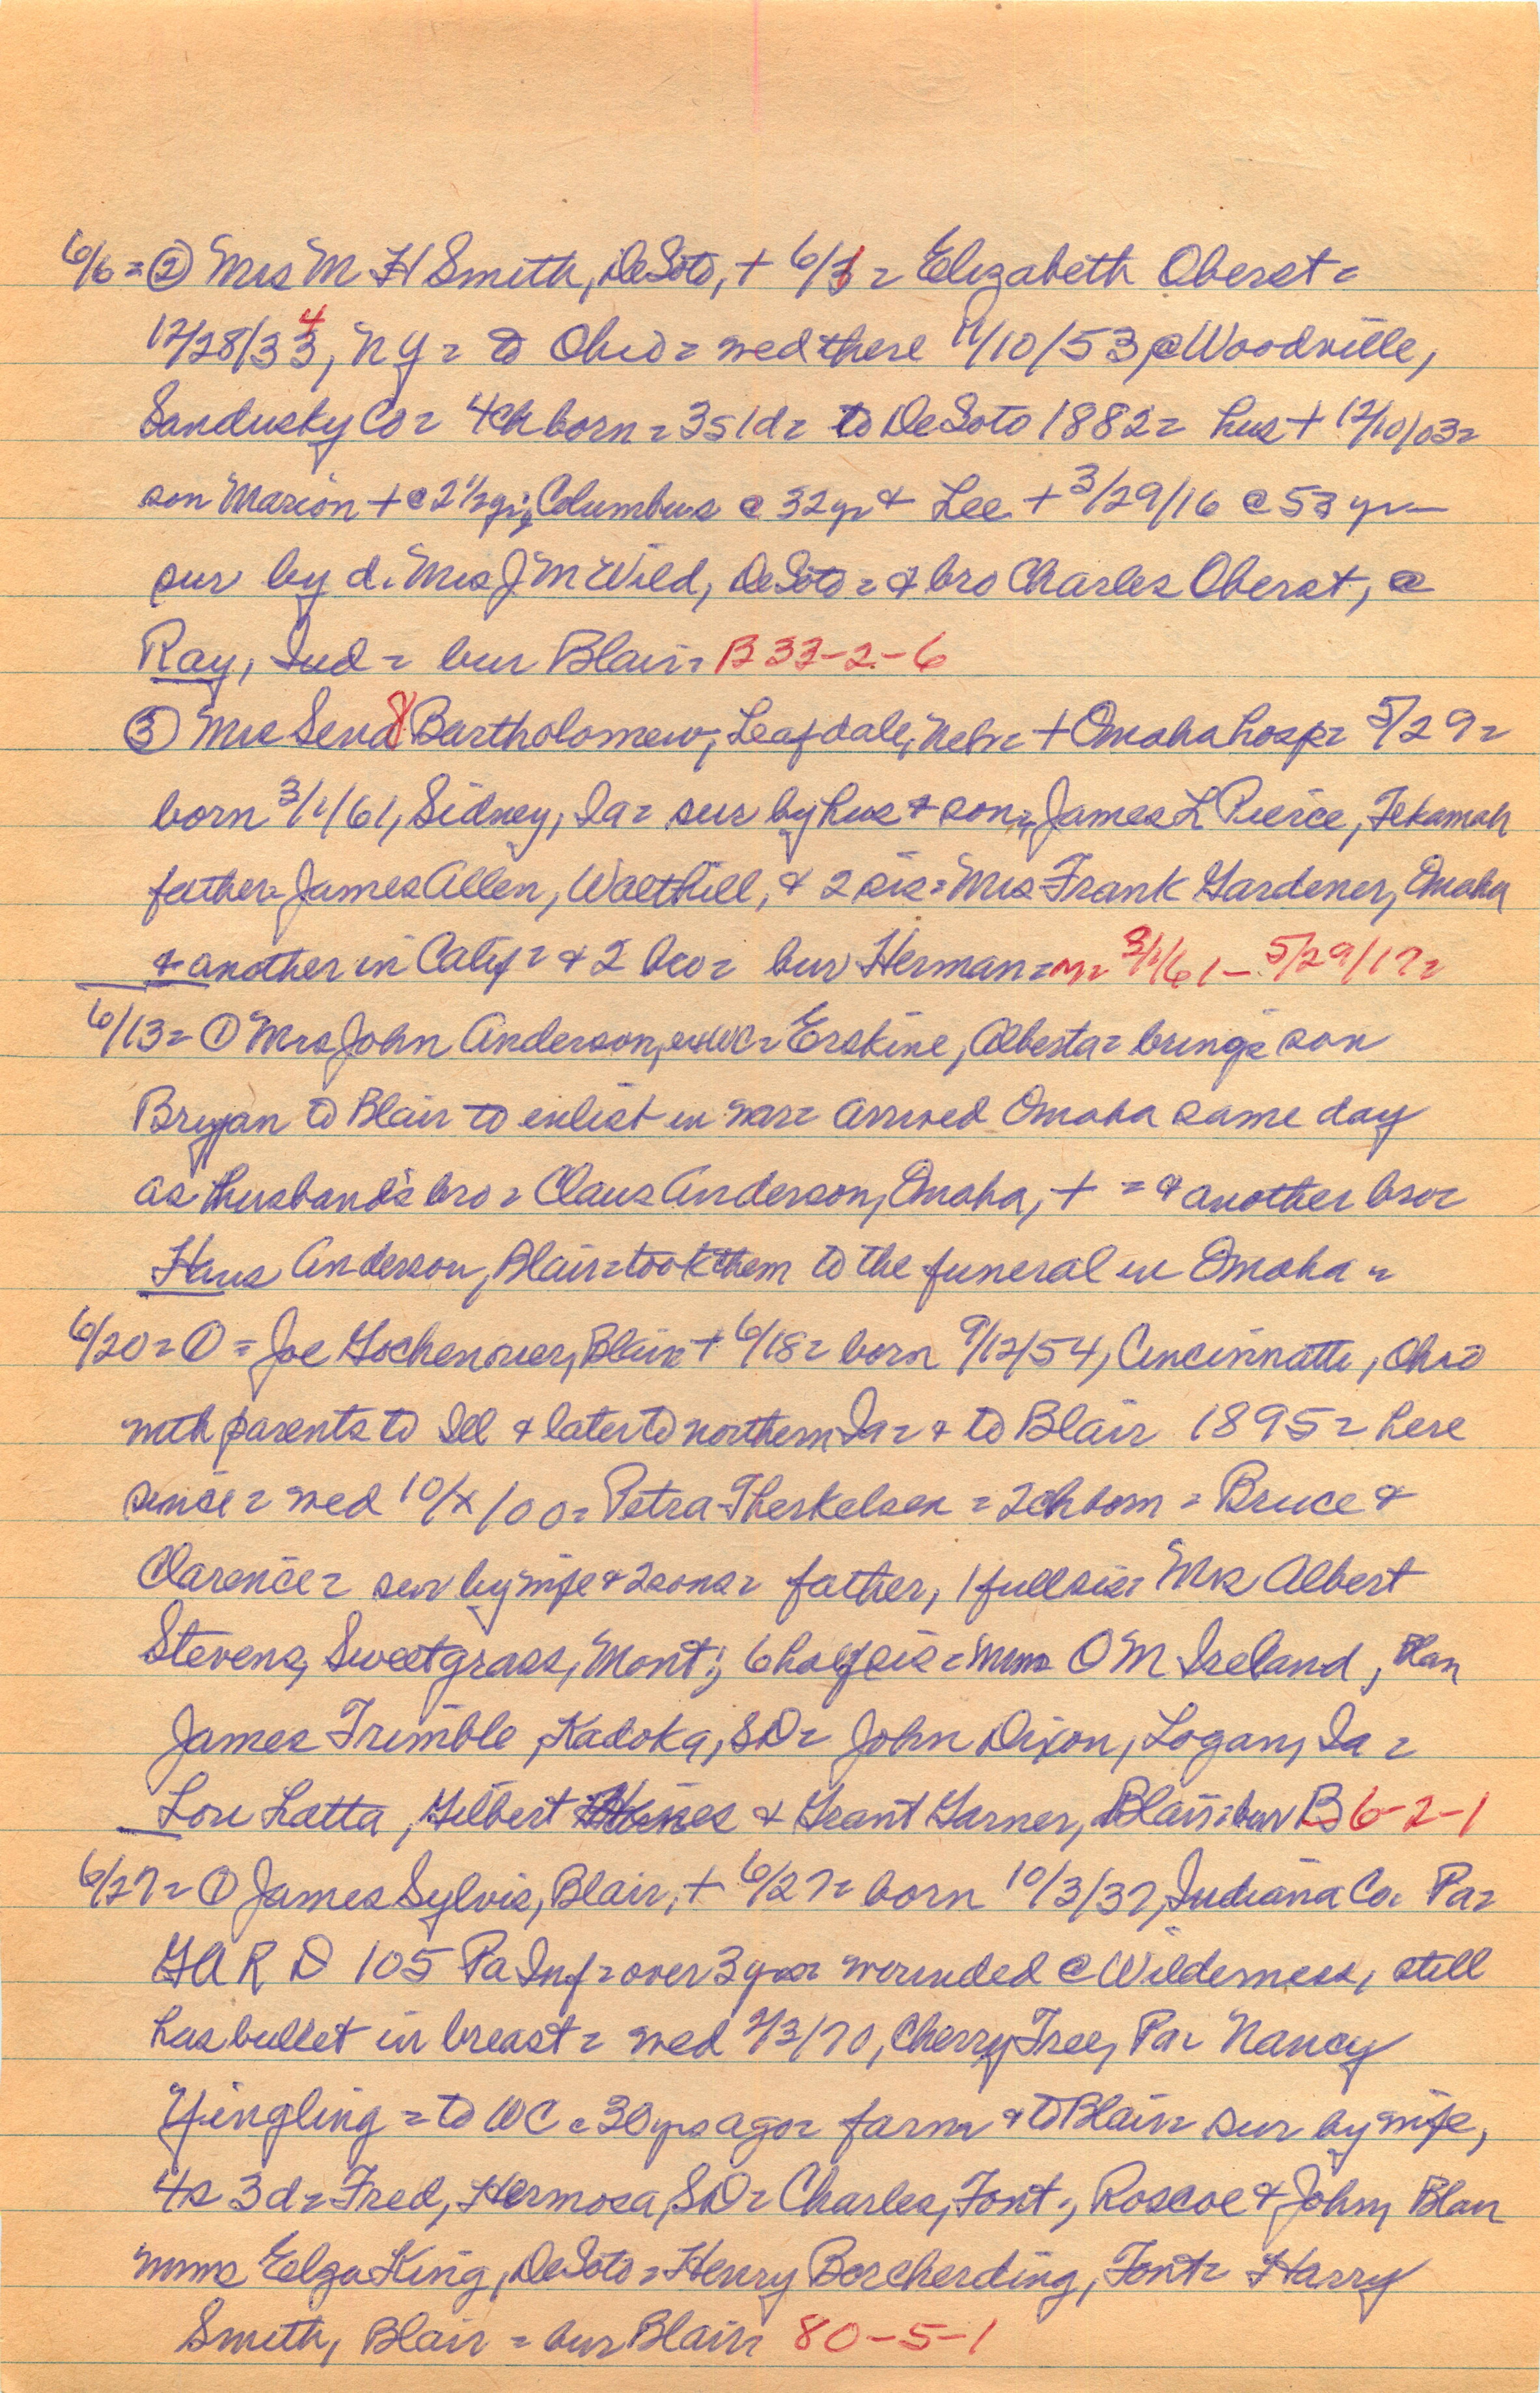 6/6 = ② Mrs M H Smith, DeSoto, + 6/1 = Elizabeth Oberst =
12/28/33 4, NY = to Ohio = wed there 11/10/53, @ Woodville,
Sandusky Co = 4 ch born = 3s 1d = to DeSoto 1882 = hus + 12/10/03 =
son Marion + @ 2 1/2 yr; Columbus @ 32 yr & Lee + 3/29/16 @ 53 yr
sur by d. Mrs J M Wild, DeSoto = & bro Charles Oberst, @
Ray, Ind = bur Blair = B 33-2-6
③ Mrs Sena Bartholomew, Leafdale, Nebr = + Omaha hosp = 5/29 =
born 3/1/61, Sidney, Ia = sur by hus & son = James L Pierce, Tekamah
father = James Allen, Walthill, & 2 sis = Mrs Frank Gardener, Omaha
& another in Calif = & 2 bro = bur Herman = m = 3/1/61 - 5/29/17 =
6/13 = ① Mrs John Anderson, ex WC = Erskine, Alberta = brings son
Bryan to Blair to enlist in war = arrived Omaha same day
as husband's bro = Claus Anderson, Omaha, + = & another bro =
Hans Anderson, Blair = took them to the funeral in Omaha =
6/20 = ① = Joe Gochenouer, Blair + 6/18 = born 9/12/54, Cincinnatti, Ohio
with parents to Ill & later to northern Ia = & to Blair 1895 = here
since = wed 10/x/00 = Petra Therkelsen = 2 ch born = Bruce &
Clarence = sur by wife & 2 sons = father, 1 full sis = Mrs Albert
Stevens, Sweetgrass, Mont; 6 half sis = Mmes O M Ireland, Blair
James Trimble, Kadoka, SD = John Dixon, Logan, Ia =
Lou Latta, Gilbert Hines & Grant Garner, Blair = bur B 6-2-1
6/27 = ① James Sylvis, Blair, + 6/27 = born 10/3/37, Indiana Co = Pa =
GAR D 105 Pa Inf = over 3 yrs = wounded @ Wilderness, still
has bullet in breast = wed 2/3/70, Cherry Tree, Pa = Nancy
Yingling = to WC c 30 yrs ago = farm & to Blair = sur by wife,
4s 3d = Fred, Hermosa, SD = Charles, Font; Roscoe & John, Blair
mmes Elza King, DeSoto = Henry Borcherding, Font = Harry
Smith, Blair = bur Blair 80-5-1